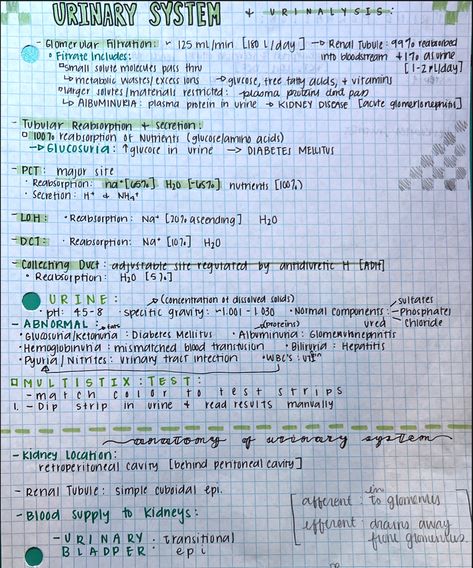 URINARY SYSTEM + URINALYSIS:
- Glomerular Filtration: ~ 125 ml/min [180 L/day] → Renal Tubule: 99% reabsorbed
° Filtrate includes: into bloodstream + 1% as urine
□ small solute molecules pass thru [1-2 L/day]
↳ metabolic wastes/excess ions → glucose, free fatty acids, + vitamins
□ larger solutes/materials restricted: plasma proteins and
↳ ALBUMINURIA: plasma protein in urine → KIDNEY DISEASE [acute glomerlonephritis]
- Tubular Reabsorption + Secretion:
□ 100% reabsorption of Nutrients (glucose/amino acids)
→ Glucosuria: ↑ glucose in urine → DIABETES MELLITUS
- PCT: major site
• Reabsorption: Na⁺ [65%] H₂O [~65%] nutrients [100%]
• Secretion: H⁺ & NH₄⁺
- LOH: • Reabsorption: Na⁺ [20% ascending] H₂O
- DCT: • Reabsorption: Na⁺ [10%] H₂O
- Collecting Duct: adjustable site regulated by antidiuretic H [ADH]
• Reabsorption: H₂O [5%]
URINE: (concentration of dissolved solids) sulfates
• pH: 45-8 specific gravity: ~1.001-1.030 • Normal components: urea Phosphates
- ABNORMAL: fats (proteins) chloride
• Glucosuria/Ketonuria: Diabetes Mellitus • Albuminuria: Glomerulonephritis
• Hemoglobinuria: mismatched blood transfusion • Biliruria: Hepatitis
• Pyuria/Nitrites: urinary tract infection • WBC's: UTI
□ MULTISTIX: TEST:
- match color to test strips
1. - Dip strip in urine & read results manually
anatomy of urinary system
- Kidney Location:
retroperitoneal cavity [behind peritoneal cavity]
- Renal Tubule: simple cuboidal epi.
- Blood supply to kidneys:
afferent: to glomerulus
efferent: drains away from glomerulus
- URINARY BLADDER: transitional epi